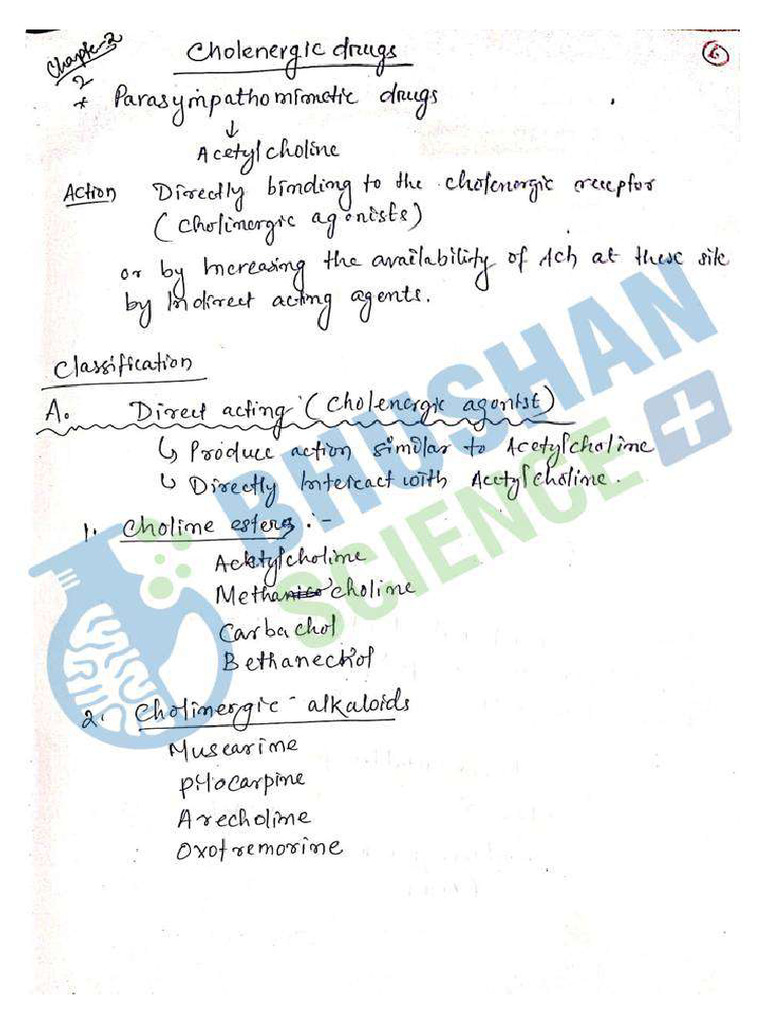 Chapter-2
2
Cholenergic drugs
6
* Parasympathomimetic drugs
↓
Acetylcholine
Action Directly binding to the cholenergic receptor
(Cholinergic agonists)
or by Increasing the availability of Ach at these site
by Indirect acting agents.
Classification
A. Direct acting (Cholenergic agonist)
↳ Produce action similar to Acetylcholine
↳ Directly Interact with Acetylcholine.
1. Choline esters :-
Acetylcholine
Methacholine
Carbachol
Bethanechol
2. Cholinergic - alkaloids
Muscarine
Pilocarpine
Arecholine
Oxotremorine
BHUSHAN
SCIENCE